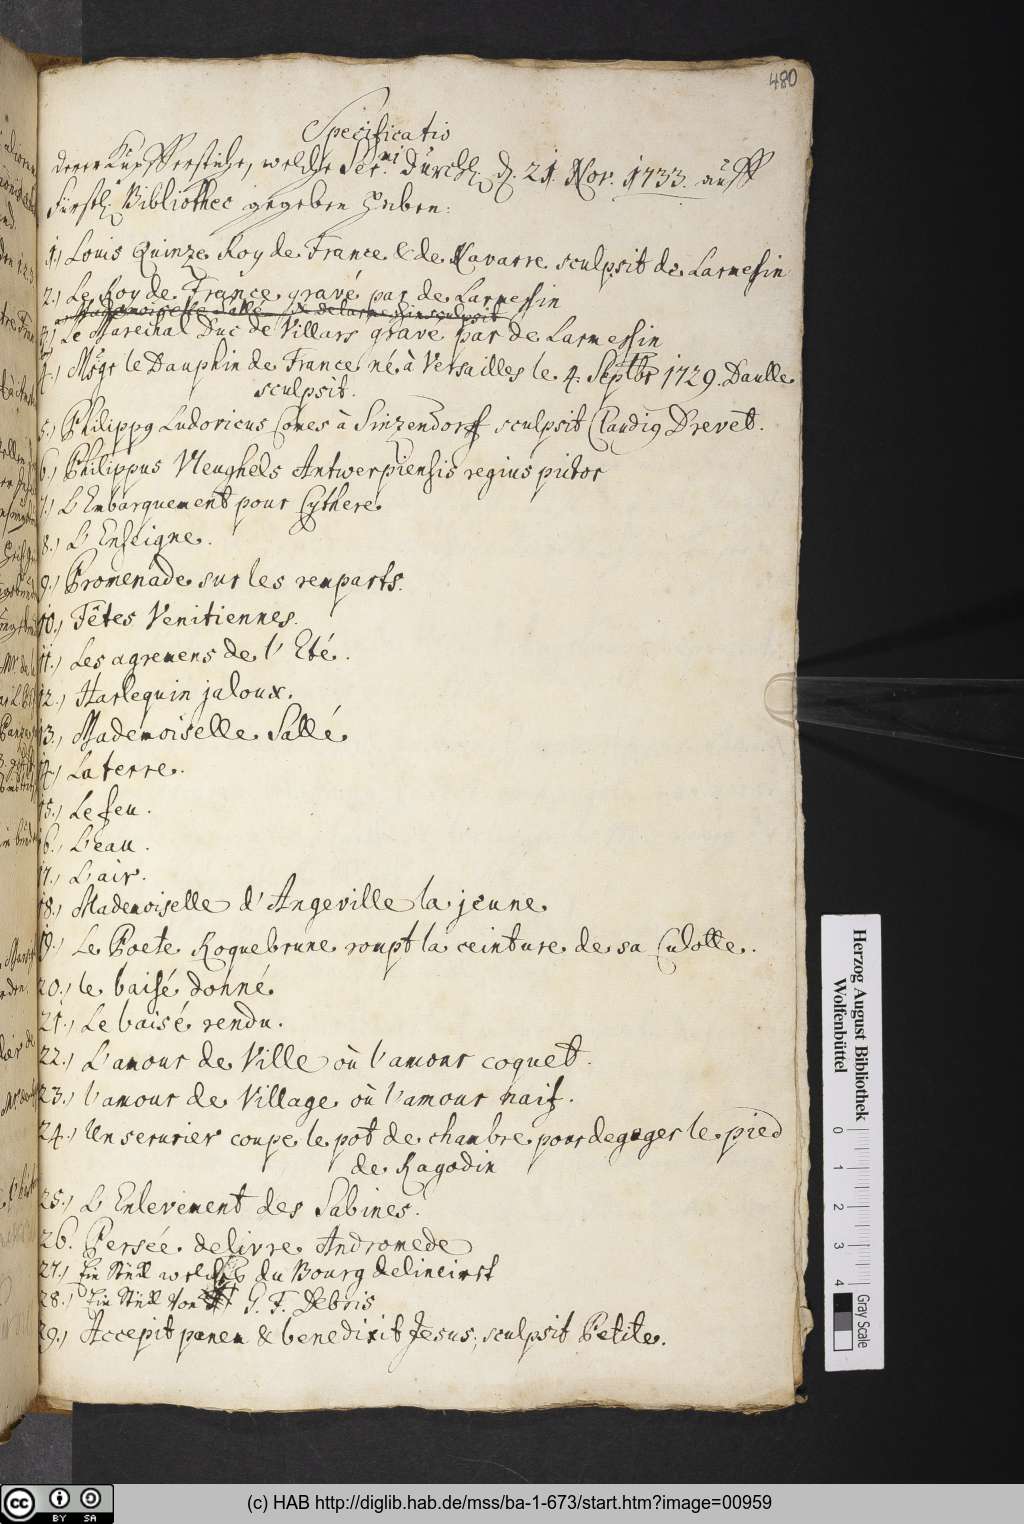 480
Specificatio
derer Kupfferstiche, welche Ser.mi Durchl. d. 21. Nov. 1733. auff
Fürstl. Bibliothec gegeben haben:
1.) Louis Quinze Roy de France & de Navarre sculpsit de Larmessin
2.) Le Roy de France gravé par de Larmessin
Mademoiselle Sallé de Larmessin sculpsit
3.) Le Marechal Duc de Villars gravé par de Larmessin
4.) Msgr le Dauphin de France né à Versailles le 4. Septbr 1729. Daulle
sculpsit.
5.) Philippg Ludovicus Comes à Sinzendorff sculpsit Claudig Drevet.
6.) Philippus Vleughels Antwerpiensis regius pictor
7.) L'Embarquement pour Cythere
8.) L'Enseigne.
9.) Promenade sur les remparts.
10.) Fêtes Venitiennes.
11.) Les agremens de l'Eté.
12.) Harlequin jaloux.
13.) Mademoiselle Sallé
14.) La terre.
15.) Le feu.
16.) L'eau.
17.) L'air.
18.) Mademoiselle d'Angeville la jeune
19.) Le Poete Roquebrune rompt la ceinture de sa Culotte.
20.) le baisé donné
21.) Le baisé rendu.
22.) L'amour de Ville où l'amour coquet.
23.) l'amour de Village où l'amour naif.
24.) Un serurier coupe le pot de chambre pour degager le pied
de Ragodin
25.) L'Enlevement des Sabines.
26. Persée delivre Andromede
27.) Ein Stück welches du Bourg delineirt
28.) Ein Stück von G. F. Debris
29.) Accepit panem & benedixit Jesus, sculpsit Petite.
Herzog August Bibliothek
Wolfenbüttel
0 1 2 3 4
Gray Scale
BY SA
(c) HAB http://diglib.hab.de/mss/ba-1-673/start.htm?image=00959